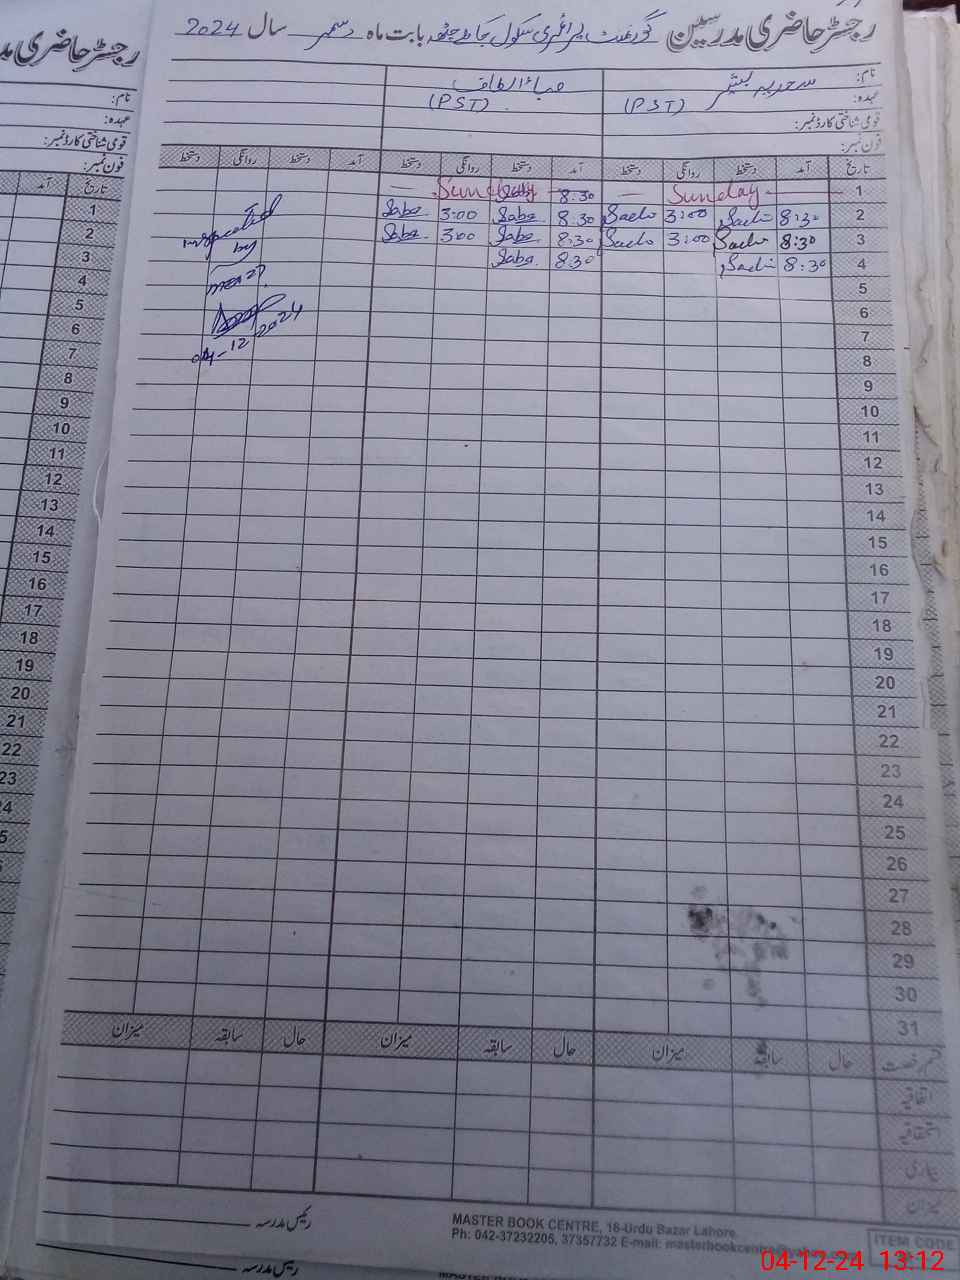 رجسٹر حاضری مدرسین گورنمنٹ پرائمری سکول بابت ماہ دسمبر سال 2024
نام: سعدیہ بشیر صباء الطاف
عہدہ: (PST) (PST)
قومی شناختی کارڈ نمبر:
فون نمبر:
تاریخ آمد دستخط روانگی دستخط آمد دستخط روانگی دستخط آمد دستخط روانگی دستخط
1 Sunday 8:30 Sunday
2 8:30 Sadi 3:00 Sadi 8:30 Saba 3:00 Saba
3 8:30 Sadi 3:00 Sadi 8:30 Saba 3:00 Saba
4 8:30 Sadi 8:30 Saba
inspected
by
04-12-2024
5
6
7
8
9
10
11
12
13
14
15
16
17
18
19
20
21
22
23
24
25
26
27
28
29
30
31
قسم رخصت حال سابقہ میزان حال سابقہ میزان حال سابقہ میزان
اتفاقیہ
استحقاقیہ
بیماری
میزان
رئیس مدرسہ
MASTER BOOK CENTRE, 18-Urdu Bazar Lahore.
Ph: 042-37232205, 37357732 E-mail: masterbookcentre@yahoo
ITEM CODE
04-12-24 13:12
رجسٹر حاضری
نام:
عہدہ:
قومی شناختی کارڈ نمبر:
فون نمبر:
تاریخ آمد
1
2
3
4
5
6
7
8
9
10
11
12
13
14
15
16
17
18
19
20
21
22
23
رئیس مدرسہ